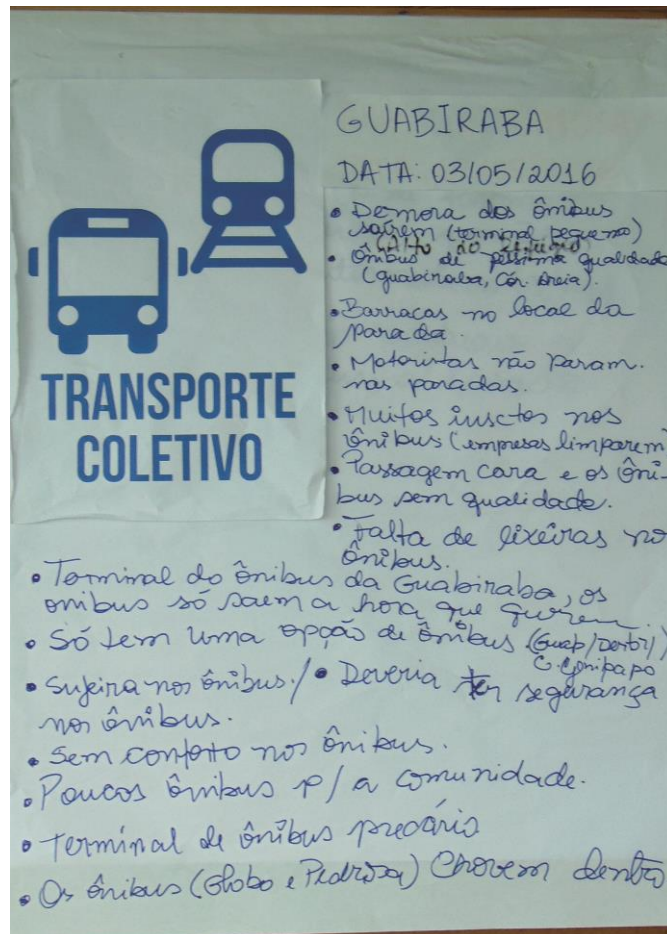 GUABIRABA
DATA: 03/05/2016
TRANSPORTE
COLETIVO
• Demora dos ônibus
saírem (terminal pequeno)
(Alto do
• Ônibus de péssima qualidade
(guabiraba, Cór. Areia).
• Barracas no local da
parada.
• Motoristas não param.
nas paradas.
• Muitos insctos nos
ônibus (empresas limparem)
• Passagem cara e os ôni-
bus sem qualidade.
• Falta de lixeiras no
Ônibus.
• Terminal do ônibus da Guabiraba, os
onibus só saem a hora que querem.
• Só tem uma opção de Ônibus (Guab/
C. Jenipapo
• Sujeira nos ônibus./ • Deveria ter segurança
nos ônibus.
• Sem conforto nos ônibus.
• Poucos ônibus p/ a comunidade.
• Terminal de ônibus precário
• Os ônibus (Globo e Pedrosa) Chovem dentro